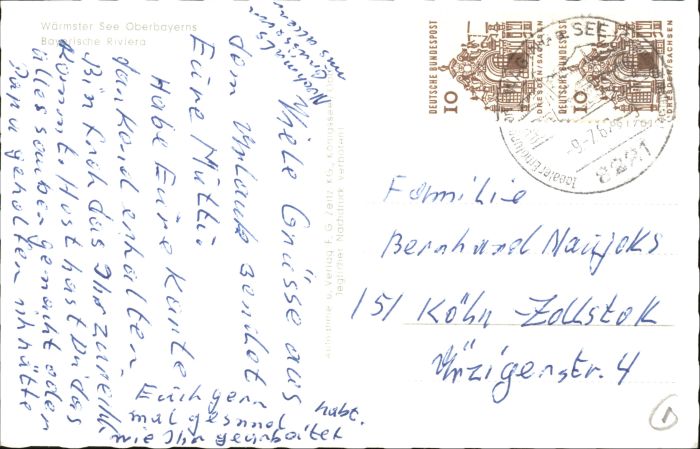 Wärmster See Oberbayerns
Bayerische Riviera
Viele Grüsse aus
dem Urlaub sendet
Eure Mutti.
Habe Eure Karte
dankend erhalten.
Bin froh das Ihr zurück
kommt. Horst hast Du das
alles sauber gemacht oder
Papa geholfen ich hätte
Euch gern
mal gesund habt.
wie Ihr gearbeitet
Nochmals
Grüsse von
uns allen
Aufnahme u. Verlag F. G. Zeitz KG., Königssee
Jeglicher Nachdruck verboten!
DEUTSCHE BUNDESPOST
10
DRESDEN/SACHSEN
DEUTSCHE BUNDESPOST
10
DRESDEN/SACHSEN
SEE
8221
Familie
Bernhard Naujoks
151 Köhn-Zollstok
Ürzigerstr. 4
1